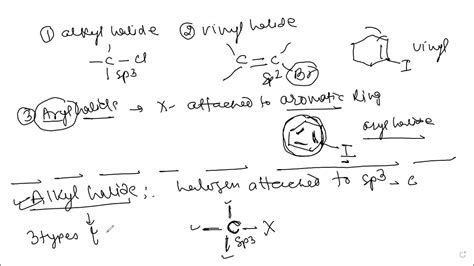 ① alkyl halide ② vinyl halide
— C — Cl C = C I vinyl
sp3 sp2 Br
③ Aryl halide → X- attached to aromatic ring
I aryl halide
Alkyl halide: halogen attached to sp3 - c
3 types — C — X
sp3